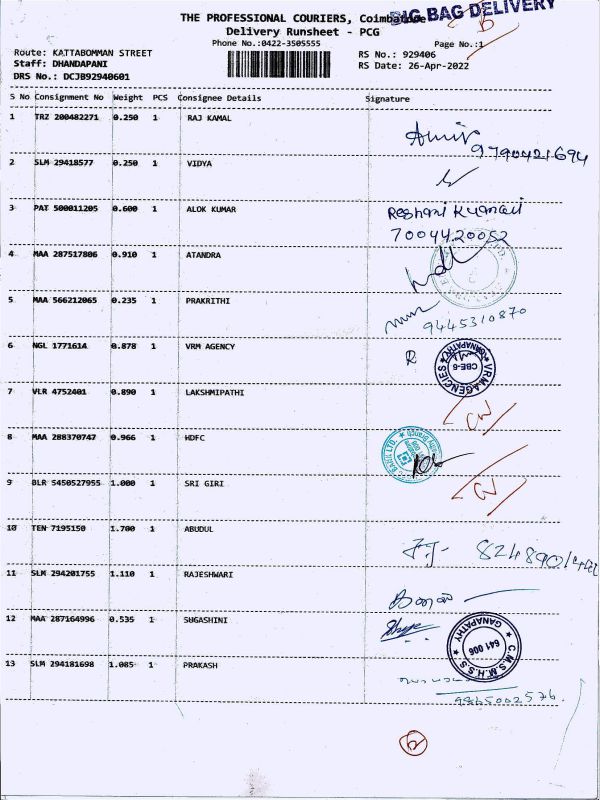 BIG BAG DELIVERY
THE PROFESSIONAL COURIERS, Coimbatore
Delivery Runsheet - PCG
Phone No.:0422-3505555
Page No.:1
Route: KATTABOMMAN STREET
RS No.: 929406
Staff: DHANDAPANI
RS Date: 26-Apr-2022
DRS No.: DCJB92940601
S No Consignment No Weight PCS Consignee Details Signature
1 TRZ 200482271 0.250 1 RAJ KAMAL
9790421694
2 SLM 29418577 0.250 1 VIDYA
3 PAT 500011205 0.600 1 ALOK KUMAR
Reshani Kumari
7004420052
4 MAA 287517806 0.910 1 ATANDRA
5 MAA 566212065 0.235 1 PRAKRITHI
9445310870
6 NGL 1771614 0.878 1 VRM AGENCY
R
VRM AGENCIES
GANAPATHY
CBE-6
7 VLR 4752401 0.890 1 LAKSHMIPATHI
8 MAA 288370747 0.966 1 HDFC
BANK LTD.
9 BLR 5450527955 1.000 1 SRI GIRI
10 TEN 7195150 1.700 1 ABUDUL
11 SLM 294201755 1.110 1 RAJESHWARI
12 MAA 287164996 0.535 1 SUGASHINI
C.M.S.M.H.S.S.
GANAPATHY
641 006
13 SLM 294181698 1.085 1 PRAKASH